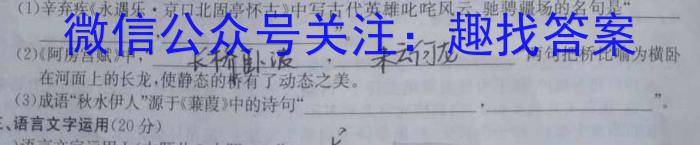 (1)辛弃疾《永遇乐·京口北固亭怀古》中写古代英雄叱咤风云、驰骋疆场的名句是“
微信公众号关注：趣找答案
(2)《阿房宫赋》中，长桥卧波，未云何龙 两句把桥比喻为横卧
在河面上的长龙，使静态的桥有了动态之美。
(3)成语“秋水伊人”源于《蒹葭》中的诗句“ ， ”。
三、语言文字运用(20分)